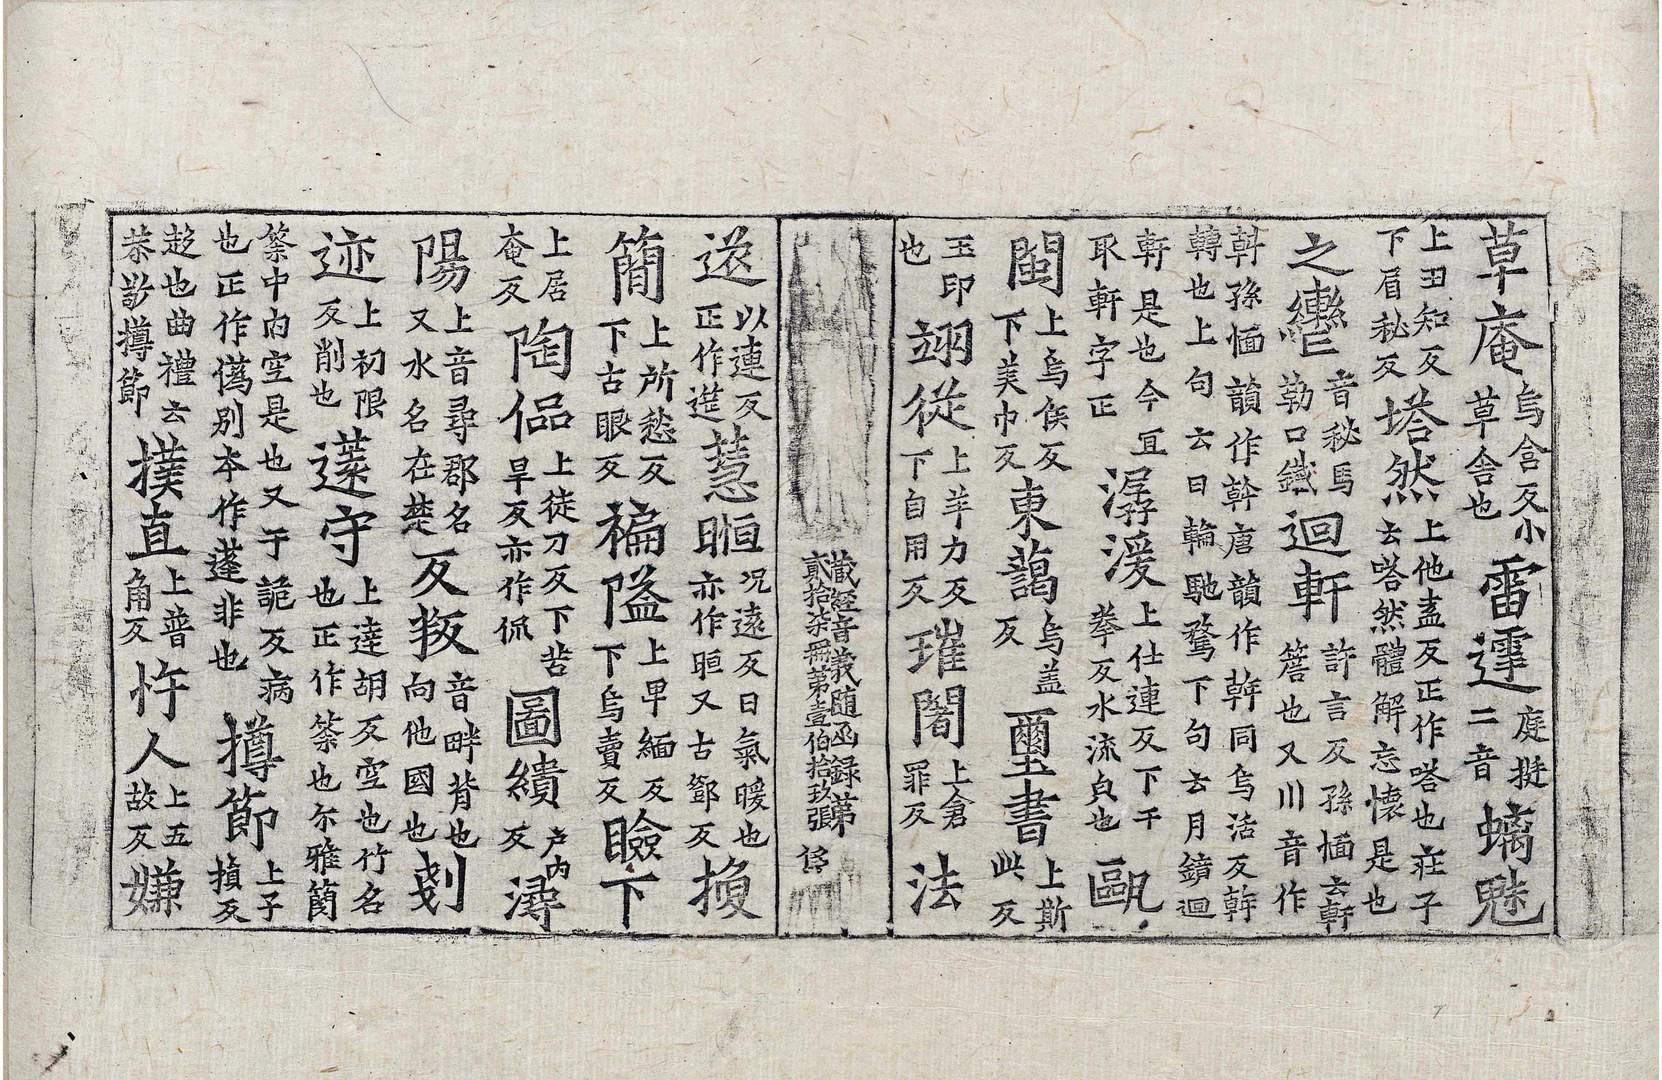 草庵烏含反小草舍也雷霆庭挺二音螭魅
上丑知反下眉秘反塔然上他盍反正作嗒也莊子云嗒然體解忘懷是也
之轡音秘馬勒口鐵迴軒許言反孫愐云軒簷也又川音作
斡孫愐韻作斡唐韻作斡同烏活反斡轉也上句云日輪馳騖下句云月鏡迴
軒是也今宜取軒字正潺湲上仕連反下于拳反水流皃也甌
閩上烏侯反下美巾反東藹烏盖反璽書上斯此反
玉印也翊從上羊力反下自用反璀闍上倉罪反法
藏経音義随函録第貳拾柒冊第壹伯拾玖張
筵以連反正作莚慧暅况遠反日氣暖也亦作晅又古鄧反換
簡上所愁反下古眼反褊隘上早緬反下烏賣反瞼下
上居奄反陶侃上徒刀反下苦旱反亦作侃圖繢戶內反潯
陽上音尋郡名又水名在楚反叛音畔背也向他國也剗
迹上初限反削也蓬守上達胡反空也竹名也正作筡也尒雅蕳
筡中内空是也又于詭反病也正作僞別本作蓬非也撙節上子損反
趍也曲禮云恭敬撙節撲直上普角反忤人上五故反嫌